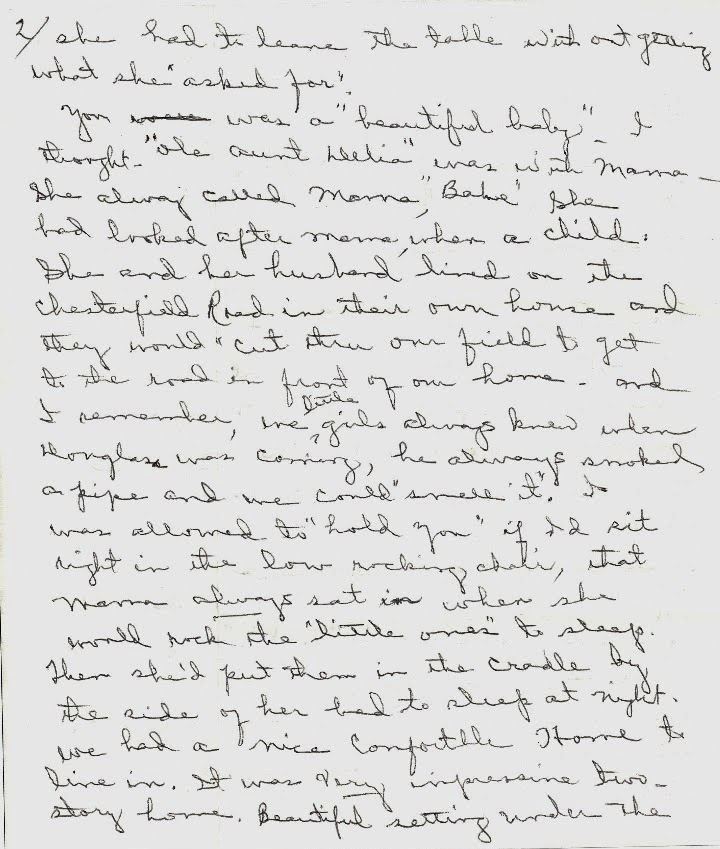 2/ she had to leave the table without getting
what she "asked for".
You were was a "beautiful baby" - I
thought - "Ole aunt Delia" was with Mama -
She alway called Mama, "Babe" She
had looked after mama, when a child.
She and her husband lived on the
Chesterfield Road in their own house and
they would "cut thru our field to get
to the road in front of our home - and
I remember, we little girls always knew when
Douglass was coming, he always smoked
a pipe and we could "smell it". I
was allowed to "hold you" if I'd sit
right in the low rocking chair, that
mama always sat in when she
would rock the "little ones" to sleep.
Then she'd put them in the cradle by
the side of her bed to sleep at night.
we had a nice Comfortble Home to
live in. It was Very impressive two-
story home. Beautiful setting under the